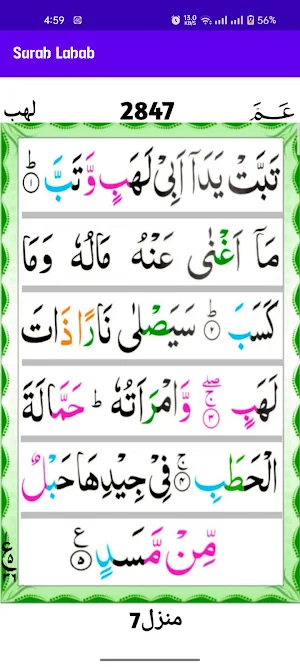 4:59 13.0 KB/S 56%
Surah Lahab
لهب 2847 عـــمّ
تَبَّتْ يَدَاۤ اَبِیْ لَهَبٍ وَّ تَبَّ ؕ۝۱
مَاۤ اَغْنٰی عَنْهُ مَالُهٗ وَمَا
كَسَبَ ؕ۝۲ سَیَصْلٰی نَارًا ذَاتَ
لَهَبٍ ۚۖ۝۳ وَّ امْرَاَتُهٗ ؕ حَمَّالَةَ
الْحَطَبِ ۚ۝۴ فِیْ جِیْدِهَا حَبْلٌ
مِّنْ مَّسَدٍ ۝۵ ع
منزل7